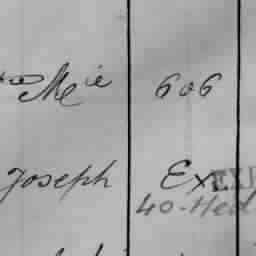 Mie 606
Joseph Ex. EX
40-Hed